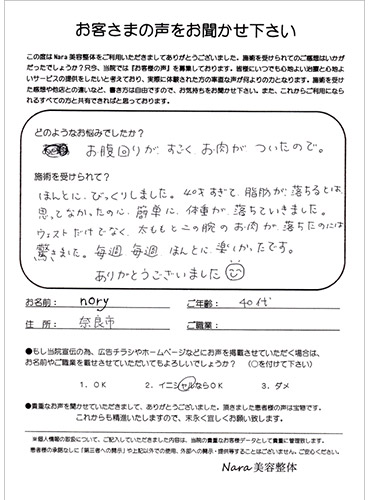 お客さまの声をお聞かせ下さい
この度はNara美容整体をご利用いただきましてありがとうございました。施術を受けられてのご感想はいかが
だったでしょうか？只今、当院では「お客様の声」を募集しております。皆様にいつでも心地よい治療と心地よ
いサービスの提供をしたいと考えており、実際に体験された方の率直な声が何よりの力となります。施術を受け
た感想や他店との違いなど、書き方は自由ですので、お気持ちをお聞かせ下さい。また、これからご利用になら
れるすべての方と共有できればと思っております。
どのようなお悩みでしたか？
お腹回りが、すごく お肉が ついたので。
施術を受けられて？
ほんとに、びっくりしました。40才すぎて、脂肪が、落ちるとは
思ってなかったのに、簡単に、体重が、落ちていきました。
ウエストだけでなく、太ももと二の腕の お肉が、落ちたのには
驚きました。毎週、毎週、ほんとに、楽しかったです。
ありがとうございました
お名前： nory ご年齢： 40代
住 所： 奈良市 ご職業：
●もし当院宣伝の為、広告チラシやホームページなどにお声を掲載させていただく場合は、
お名前やご職業を載せさせていただいてもよろしいでしょうか？（○を付けて下さい）
1．OK 2．イニシャルならOK 3．ダメ
●貴重なお声を聞かせていただきまして、ありがとうございました。頂きました患者様の声は宝物です。
これからも精進いたしますので、末永く宜しくお願い致します。
※個人情報の取扱について、ご記入していただきました内容は、当院の貴重なお客様データとして大切に管理致します。
患者様の承諾なしに「第三者への開示」や上記以外での使用、外部への開示・提供等することはございません。ご安心ください。
Nara美容整体